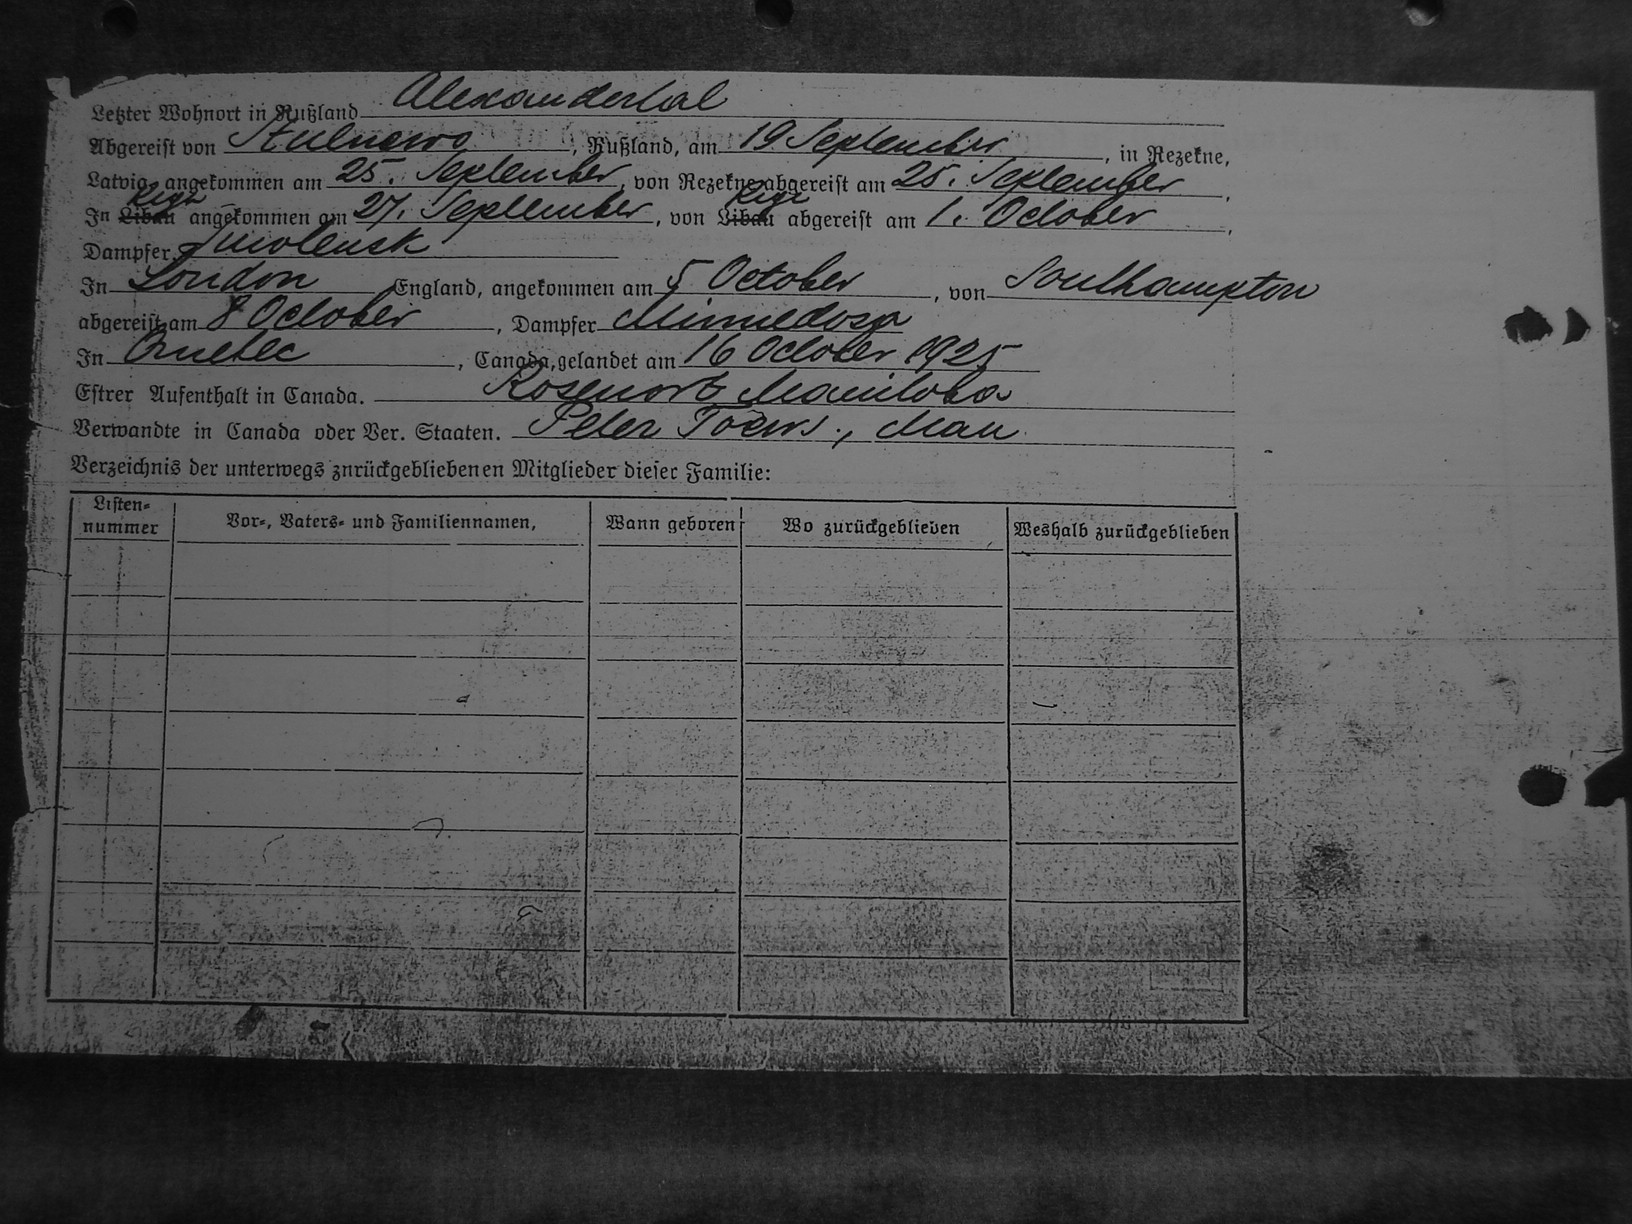 Letzter Wohnort in Rußland Alexandertal
Abgereist von Stulnewo, Rußland, am 19 September, in Rezekne,
Latvia angekommen am 25. September, von Rezekne abgereist am 25. September,
Riga Riga
In Libau angekommen am 27. September, von Libau abgereist am 1. October,
Dampfer Smolensk
In London England, angekommen am 5 October, von Southampton
abgereist am 8 October, Dampfer Minnedosa
In Quebec, Canada, gelandet am 16 October 1925
Estrer Aufenthalt in Canada. Rosenort Manitoba
Verwandte in Canada oder Ver. Staaten. Peter Toews., Man
Verzeichnis der unterwegs znrückgebliebenen Mitglieder dieser Familie:
Listen-
nummer
Vor-, Vaters- und Familiennamen,
Wann geboren
Wo zurückgeblieben
Weshalb zurückgeblieben